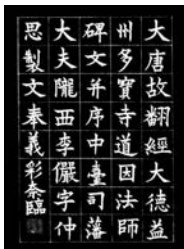 大唐故翻經大德益
州多寶寺道因法師
碑文并序中臺司藩
大夫隴西李儼字仲
思製文奉義彩奈臨